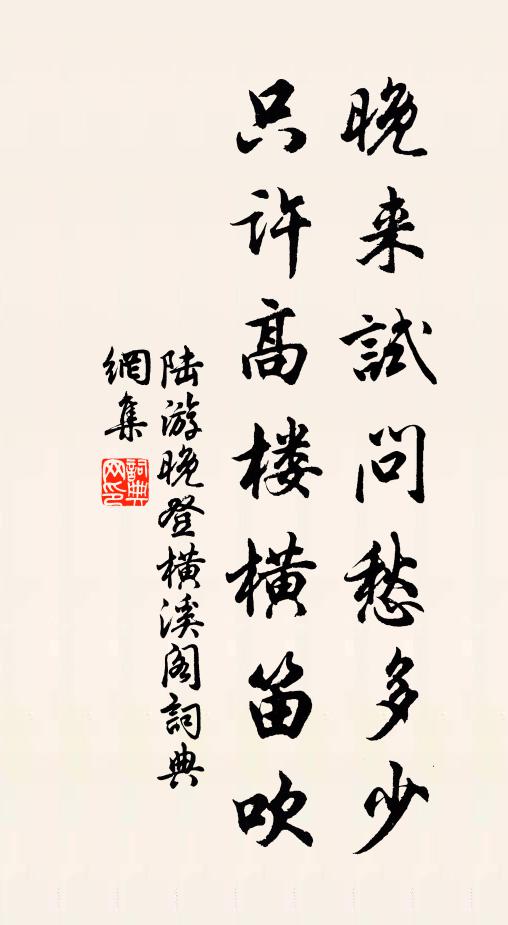 晚来試问愁多少
只许高楼横笛吹
陆游晚登横溪阁詞典
網集
詞典
网印